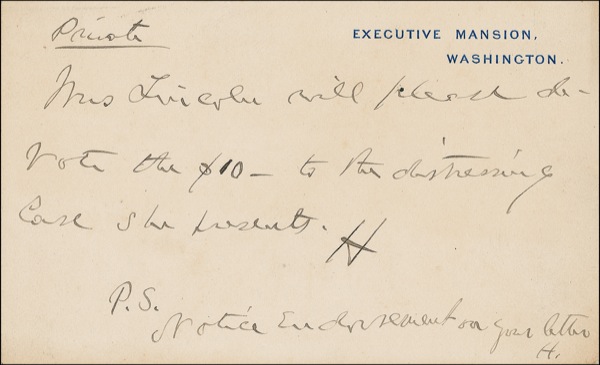 Private
EXECUTIVE MANSION,
WASHINGTON.
Mrs Lincoln will please de-
vote the $10 - to the distressing
Case she presents. H
P.S.
Notice Endorsement on your letter
H.